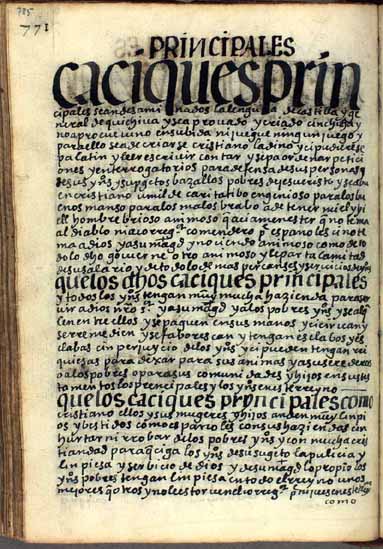 785
771
PRINCIPALES
CACIQVES PRIN
cipales sean desaminados la lengua de castilla y ge
neral de quichiua y sea prouado y criado cin chicha y
no aprocure uino en su bida ni juegue ningun juego y
para ello sea de criarse cristiano ladino y ci pudiere se
pa latin y leer escriuir contar y sepa ordenar peticio
ciones y enterrogatorios para defensa de sus personas y
de sus yns y sugetos bazallos pobres de jesucristo y sea bu
en cristiano umilde caritatibo engenioso para los bu
enos manso para los malos brabo a de tener miel y hi
el hombre brioso animoso que a menester que no tema
al diablo ni a corregor comendero pe españoles cino te
ma a dios y a su magd y no uiendo animoso como de to
do lo dho gouierne otro animoso y le parta la mitad
de su salario y de todo lo de mas percanses y seruicios de yns
que los dhos caciques prencipales
y todos los yns tengan muy mucha hazienda para ser
uir a dios nro sr y a su magd y a los pobres yns y se alq
len entre ellos y se paguen en sus manos y cienrican y
se rremedien y se faborescan y tengan esclabos y es
clabas cin perjuycio de los yns ci pueden tengan rri
quiesas para dexar para sus animas y a sus erederos
o a los pobres o para sus comunidades y hijos en sus tes
tamentos los prencipales y los yns en este rreyno
que los caciques prencipales como
cristiano ellos y sus mugeres y hijos anden muy linpi
os y bestidos como españoles con sus haziendas cin
hurtar ni rrobar de los pobres yns y con mucha cris
tiandad para que ciga los yns de su sugeto la pulicia y
linpiesa y serbicio de dios y de su magd lo propio los
yns pobres tengan linpiesa en todo el rreyno unos
mejores que otros y no le estorue nenguo corregor
como